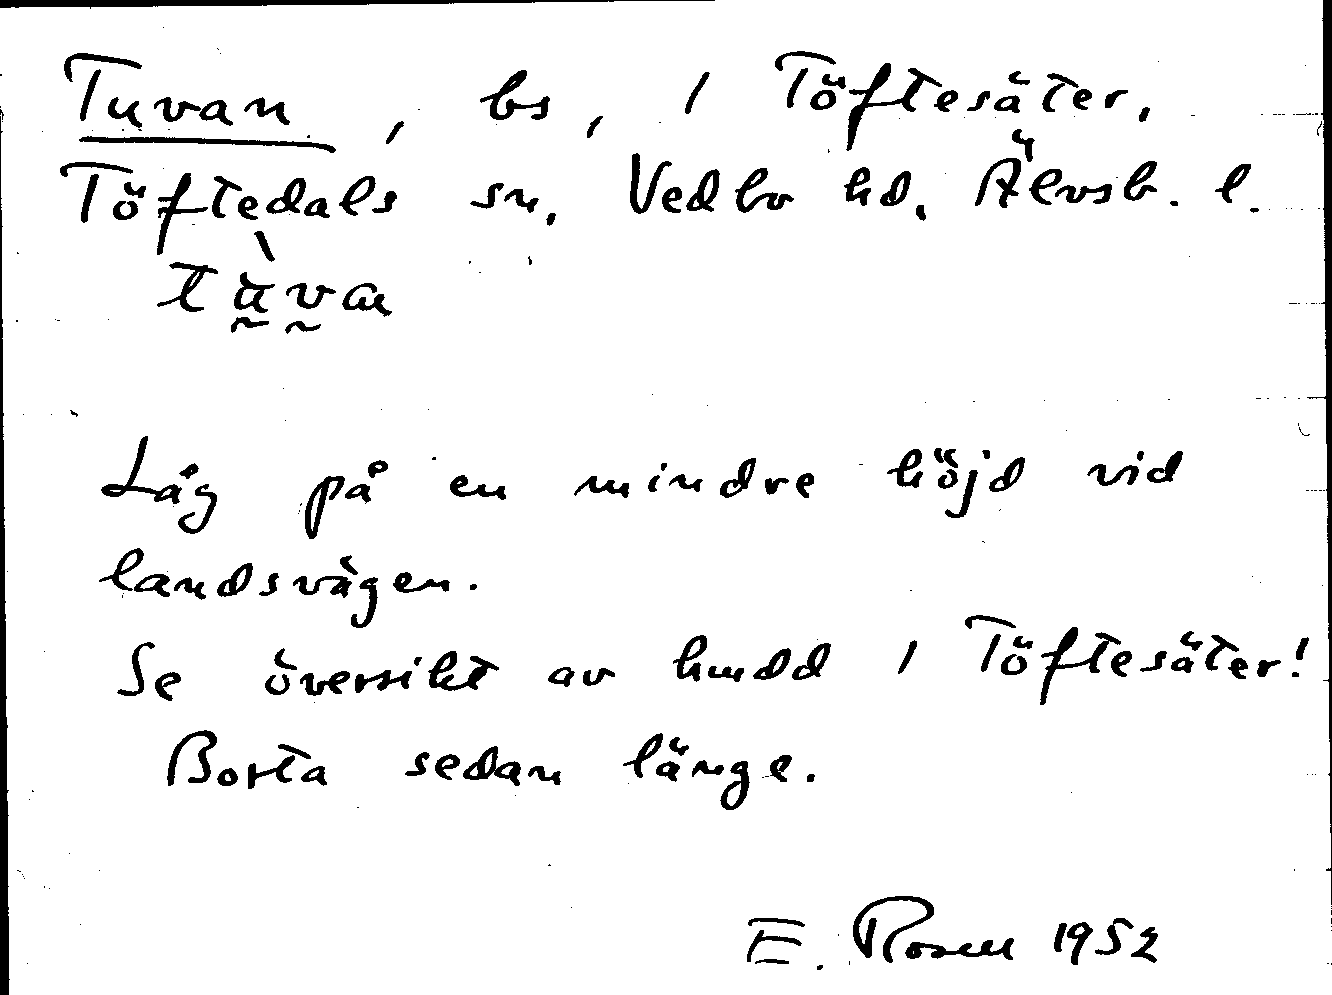 Tuvan, bs, / Töftesäter,
Töftedals sn, Vedbo hd, Älvsb. l.
Låg på en mindre höjd vid
landsvägen.
Se översikt av hmdd / Töftesäter!
Borta sedan länge.
E. Rosen 1952